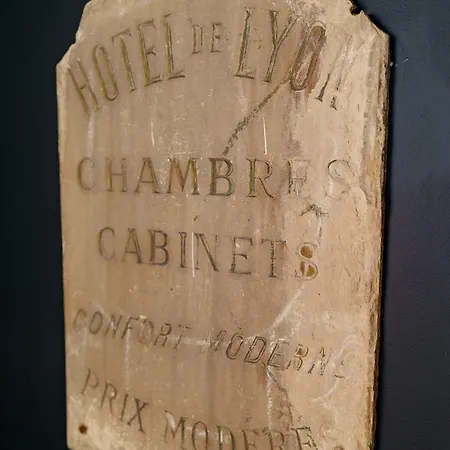 HOTEL DE LYON
CHAMBRES
CABINETS
CONFORT MODERNE
PRIX MODERES